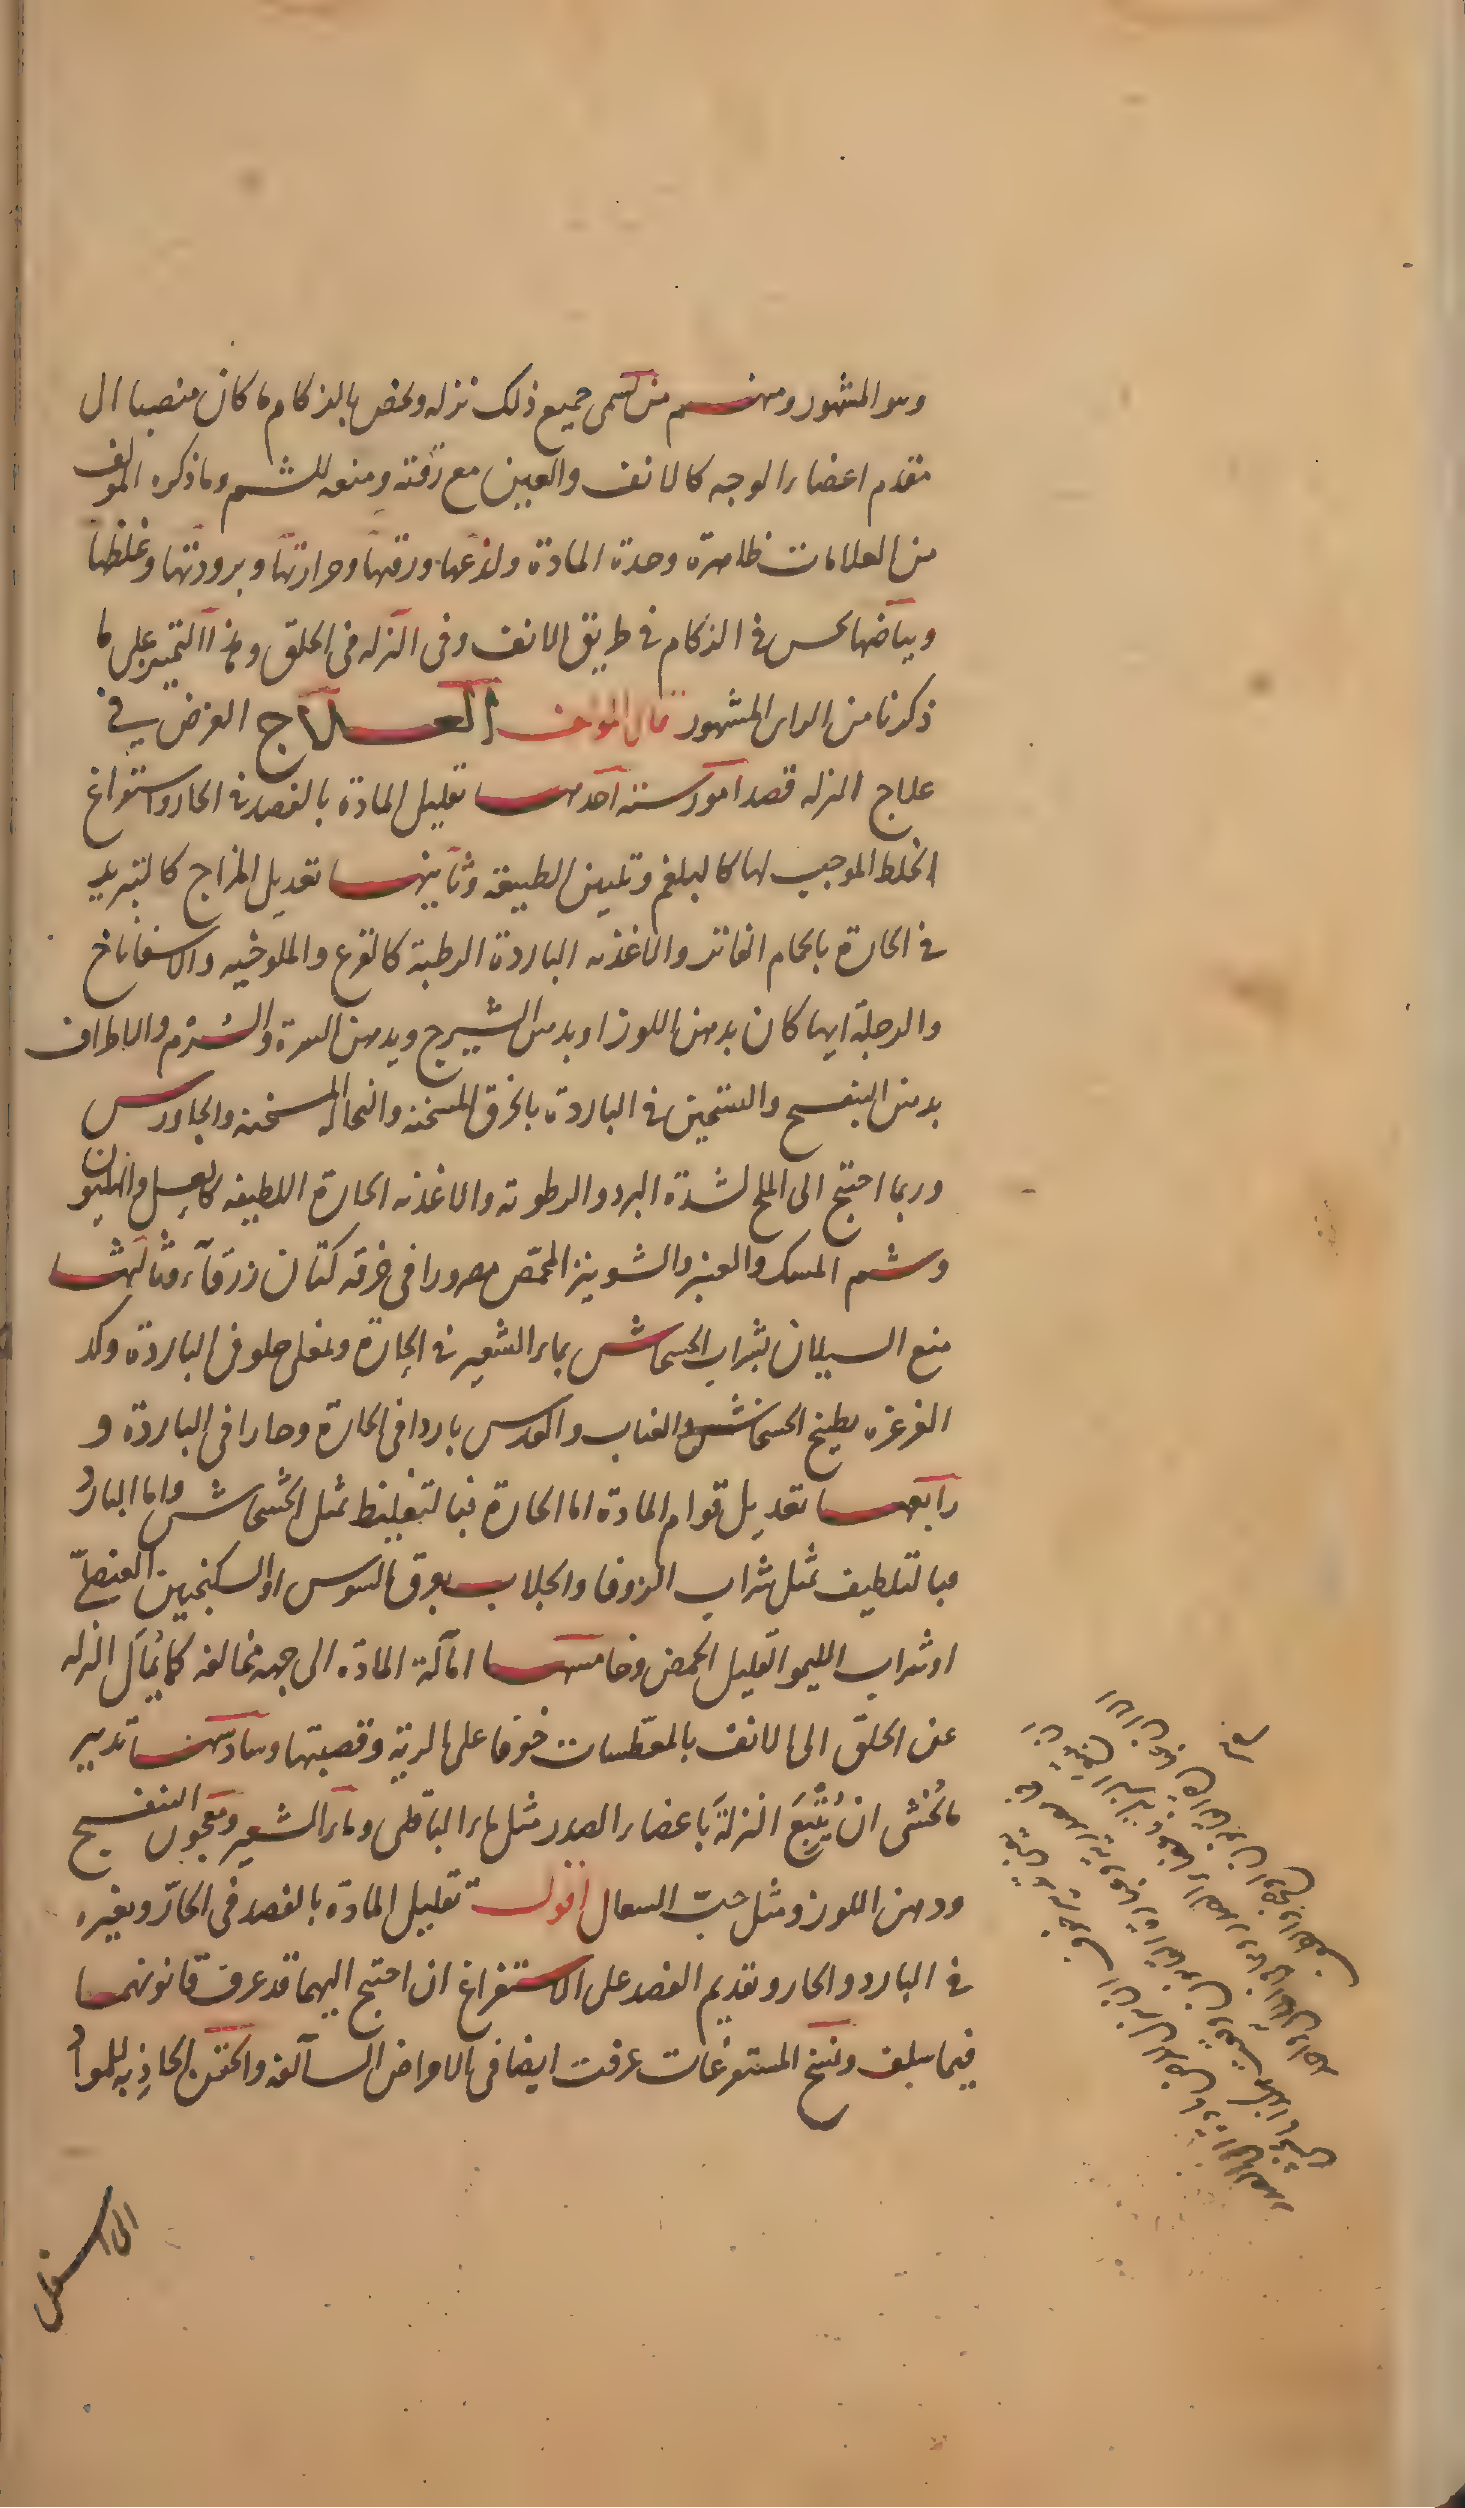 وهو المشهور ومنهم من يسمى جميع ذلك نزله ويخص بالزكام ما كان منصبا الى
مقدم اعضاء الوجه كالانف والعين مع رقته ومنعه للشم وما ذكره المؤلف
من العلامات ظاهرة وحدة المادة ولذعها ورقتها وحرارتها وبرودتها وغلظها
وبياضها يحس في الزكام في طريق الانف وفي النزله في الحلق وهذا التمييز على ما
ذكرنا من الراى المشهور قال المؤلف العلاج الغرض في
علاج النزله قصد امور سته احدها تقليل المادة بالفصد في الحار واستفراغ
الخلط الموجب لها كالبلغم وتليين الطبيعه وثانيها تعديل المزاج كالتبريد
في الحارة بالحمام الفاتر والاغذيه الباردة الرطبة كالقرع والملوخيه والاسفاناخ
والرجلة ايها كان بدهن اللوز او بدهن الشيرج وبدهن السرة والشرم والاطراف
بدهن البنفسج والتسخين في الباردة بالخرق المسخنه والنخاله المسخنه والجاورس
وربما احتيج الى الملح لشدة البرد والرطوبه والاغذيه الحارة اللطيفه كالعسل والهليون
وشم المسك والعنبر والشونيز المحمص مصرورا في خرقه كتان زرقاء وثالثها
منع السيلان بشراب الخشخاش بماء الشعير في الحارة ومغلى حلو في الباردة وكذ
الغرغره بطبيخ الخشخاش والعناب والعدس باردا في الحارة وحارا في الباردة و
رابعها تعديل قوام المادة اما الحارة فبالتغليظ بمثل الخشخاش واما الباردة
فبالتلطيف بمثل شراب الزوفا والجلاب بعرق السوس او السكنجبين العنصلي
او شراب الليمو القليل الحمض وخامسها امالة المادة الى جهه مخالفه كما يمال النزله
عن الحلق الى الانف بالمعطسات خوفا على الرية وقصبتها وسادسها تدبير
ما يخشى ان يتبع النزلة باعضاء الصدر مثل ماء الباقلى وماء الشعير ومعجون البنفسج
ودهن اللوز ومثل حب السعال اقول تقليل المادة بالفصد في الحار وبغيره
في البارد والحار وتقديم الفصد على الاستفراغ ان احتيج اليهما قد عرف قانونهما
فيما سلف ونسخ المستفرغات عرفت ايضا في الامراض السالفه والحقن الجاذبه للمواد